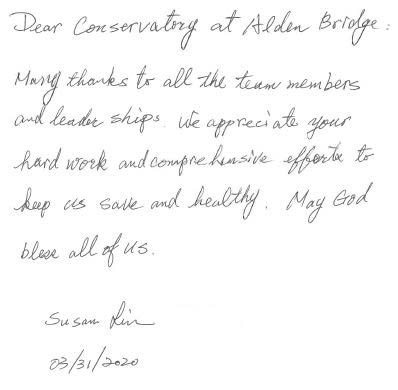 Dear Conservatory at Alden Bridge:
Many thanks to all the team members
and leader ships. We appreciate your
hard work and comprehensive efforts to
keep us save and healthy. May God
bless all of us.
Susan
03/31/2020